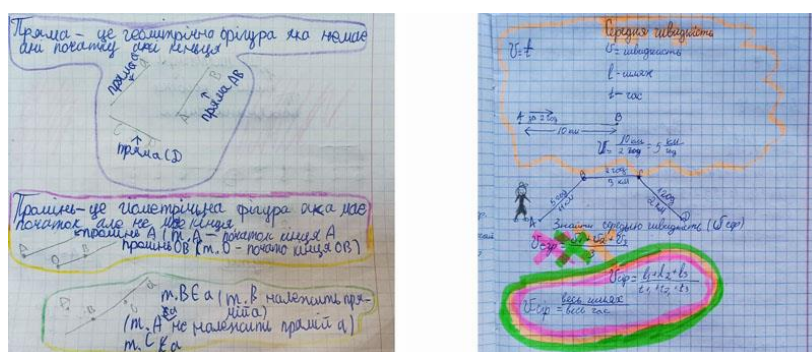 Пряма - це геометрічно фігура яка немає
ані початку ані кінця
пряма a
B
пряма AB
C
пряма CD
Промінь - це гіометрічна фігура яка має
початок але не має кінця
промінь A (т. A - початок кінця A
промінь OB (т. O - почато кінця OB)
A
B
C
a
т. B ∈ a (т. B належить пря-
мій a)
(т. A не належить прямій a)
т. C ∉ a
Середня швидкість
v = t
v = швидкість
l - шлях
t - час
A
B
10 км
v = 10 км / 2 год = 5 км/год
2 год
5 км
A
D
Знайти середню швидкість (vсер)
vсер = v1 + v2 + v3
vсер = l1 + l2 + l3 / t1 + t2 + t3
vсер = весь шлях / весь час